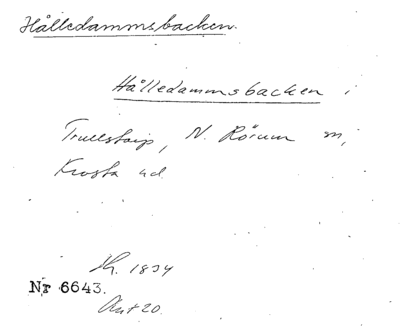 Hålledammsbacken.
Hålledammsbacken i
Trullstorp, N. Rörum m,
Frosta hd
1834
Nr 6643.